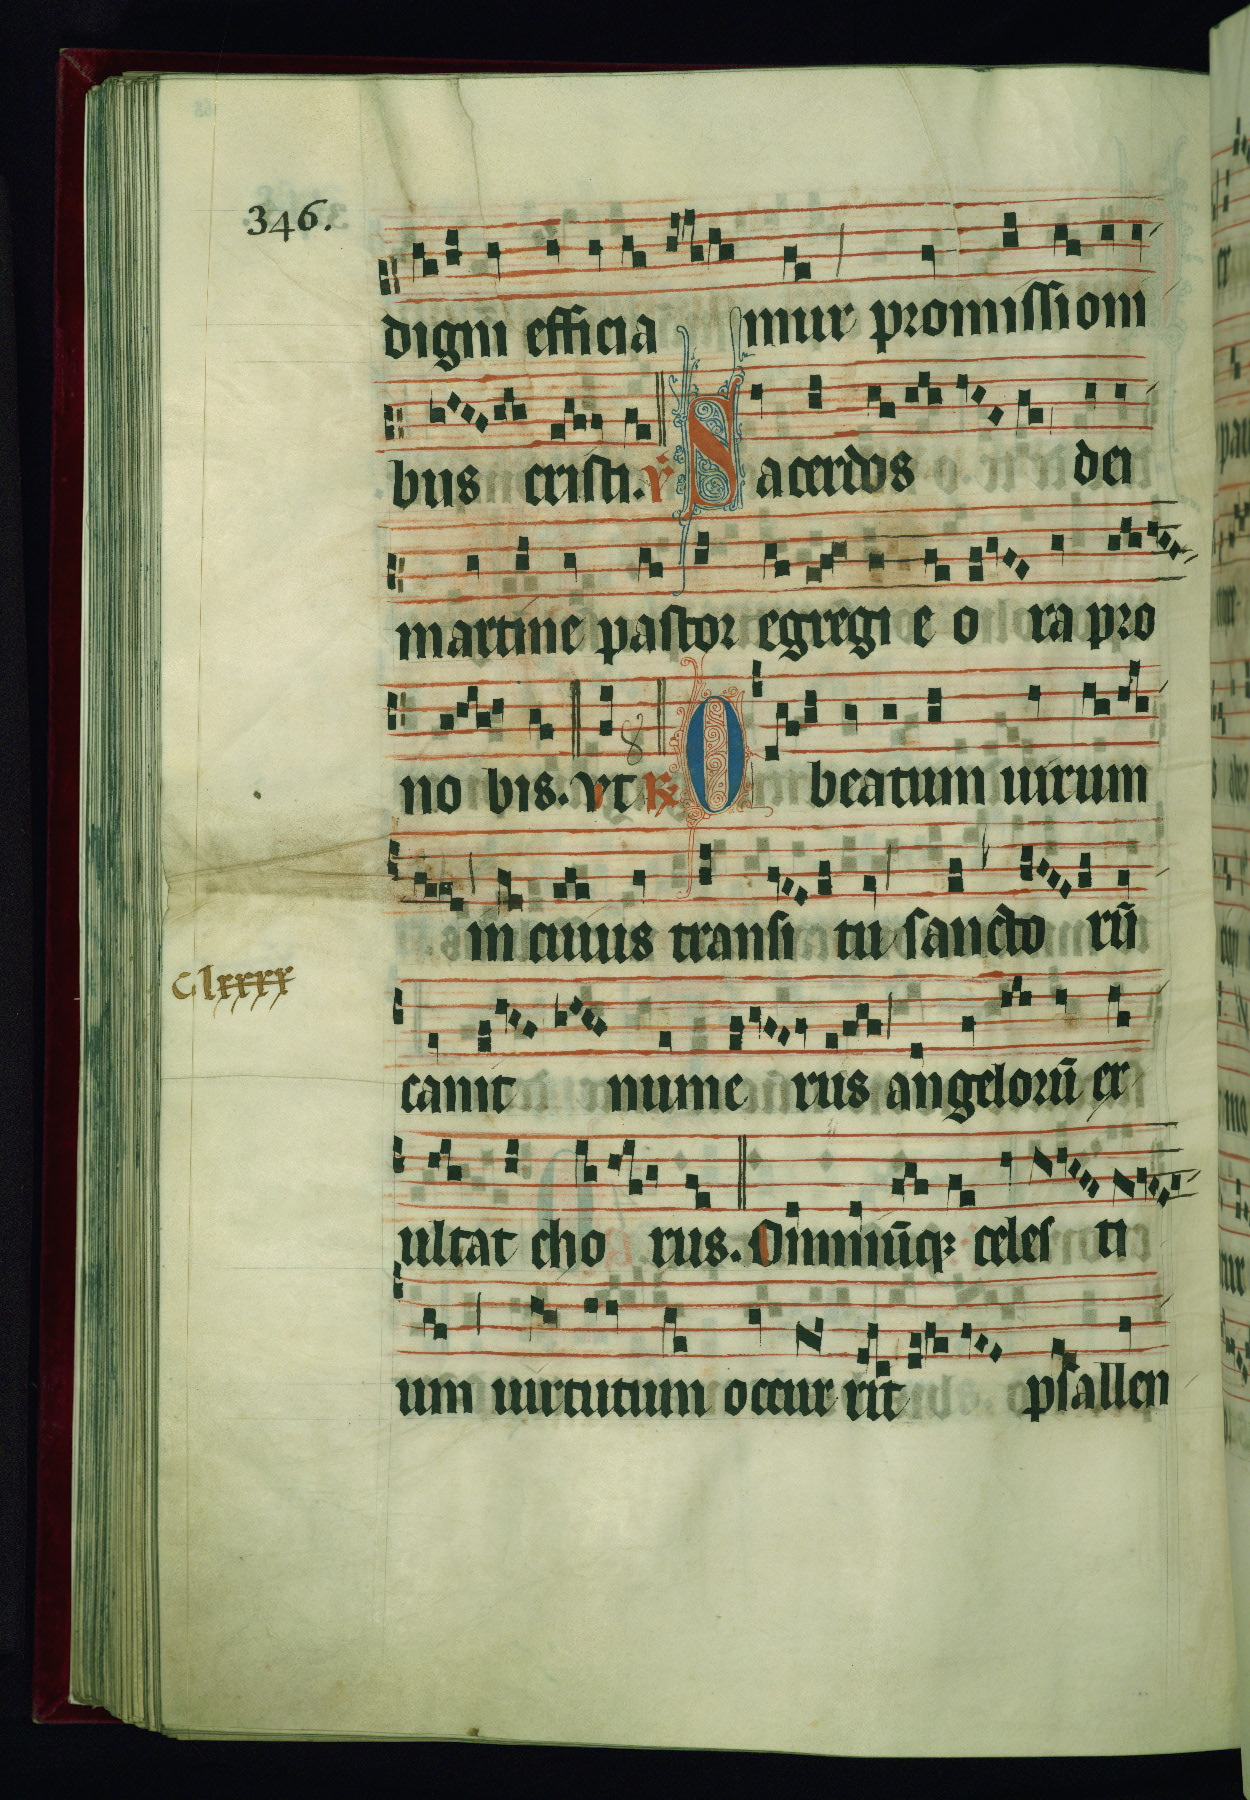 346.
digni efficia mur promissioni
bus cristi. ℣ Sacerdos dei
martine pastor egregi e o ra pro
no bis. vt 8 ℟ O beatum uirum
in cuius transi tu sancto rū
Clxxxx
canit nume rus angelorū ex
ultat cho rus. Omniūq; celes ti
um uirtutum occur rit psallen